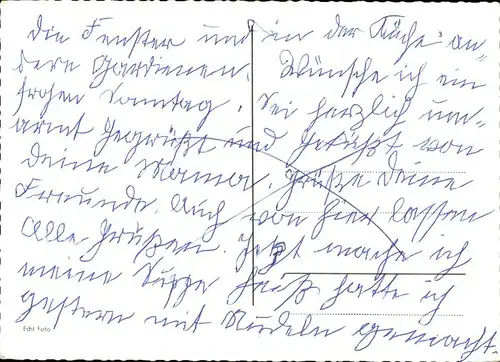 die Fenster und in der Küche an-
dere Gardienen. Wünsche ich ein
frohen Sonntag. Sei herzlich um-
armt gegrüßt und geküßt von
deine Mama. Grüße deine
Freunde. Auch von hier lassen
Alle Grüßen. Jetzt mache ich
meine Suppe heiß hatte ich
gestern mit Nudeln gemacht
Echt Foto